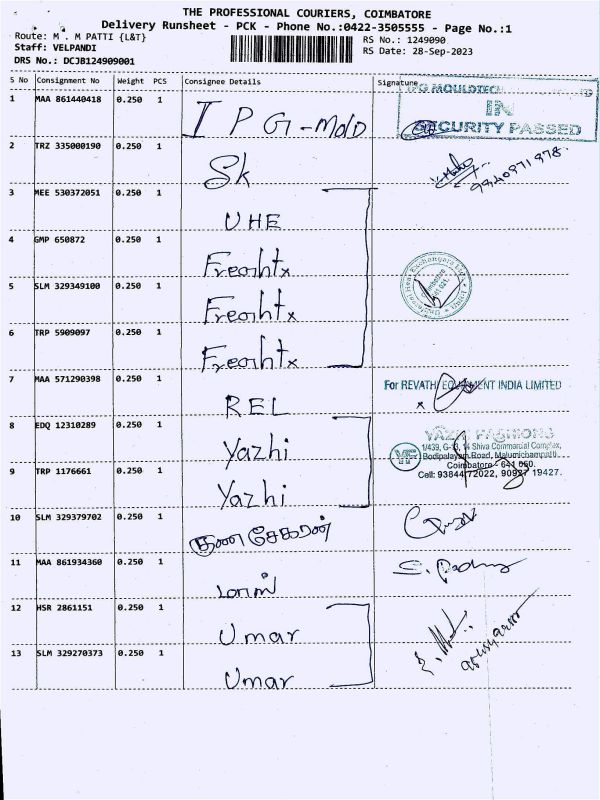 THE PROFESSIONAL COURIERS, COIMBATORE
Delivery Runsheet - PCK - Phone No.:0422-3505555 - Page No.:1
Route: M . M PATTI {L&T}
RS No.: 1249090
Staff: VELPANDI
RS Date: 28-Sep-2023
DRS No.: DCJB124909001
S No Consignment No Weight PCS Consignee Details Signature
1 MAA 861440418 0.250 1 IPG-Mold
IPG MOULDTECH
IN
SECURITY PASSED
2 TRZ 335000190 0.250 1 Sk
3 MEE 530372051 0.250 1 UHE
4 GMP 650872 0.250 1 Freahtx
5 SLM 329349100 0.250 1 Freahtx
6 TRP 5909097 0.250 1 Freahtx
7 MAA 571290398 0.250 1 REL
For REVATHI EQUIPMENT INDIA LIMITED
8 EDQ 12310289 0.250 1 Yazhi
YAZHI FASHIONS
1/439, G-13, 14 Shiva Commercial Complex,
Bodipalayam Road, Malumichampatti,
Coimbatore - 641 050.
Cell: 93844 72022, 90927 19427.
YF
9 TRP 1176661 0.250 1 Yazhi
10 SLM 329379702 0.250 1 குணசேகரன்
11 MAA 861934360 0.250 1
12 HSR 2861151 0.250 1 Umar
13 SLM 329270373 0.250 1 Umar